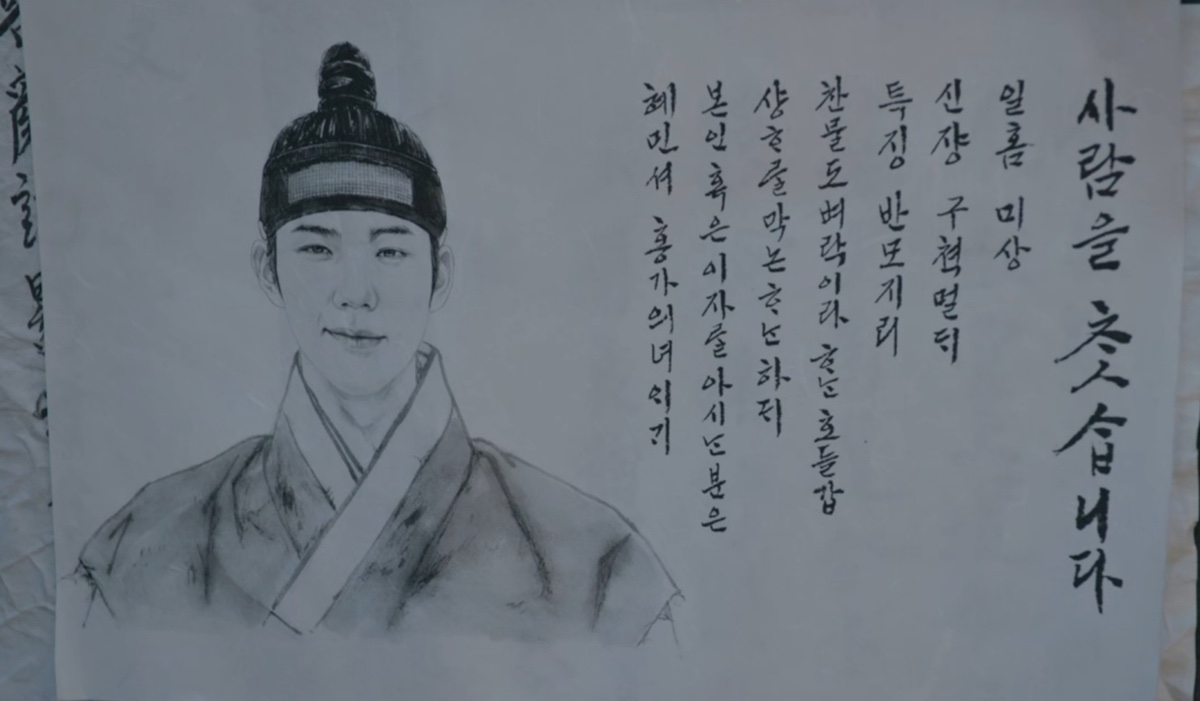 사람을 ᄎᆞᆺ습니다
일홈 미상
신쟝 구쳑멀ᄃᆡ
특징 반모지리
찬물도벼락이라 ᄒᆞᄂᆞᆫ 호들갑
샹ᄒᆞ를막논ᄒᆞᄂᆞᆫ하ᄃᆡ
본인혹은이자를아시ᄂᆞᆫ분은
혜민셔 홍가의녀의기